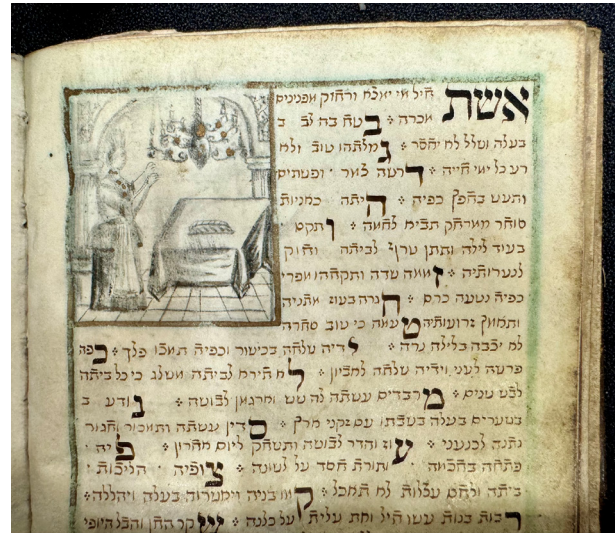 אשת חיל מי ימצא ורחוק מפנינים
מכרה : בטח בה לב ב
בעלה ושלל לא יחסר : גמלתהו טוב ולא
רע כל ימי חייה : דרשה צמר ופשתים
ותעש בחפץ כפיה : היתה כאניות
סוחר ממרחק תביא לחמה : ותקם
בעוד לילה ותתן טרף לביתה וחוק
לנערותיה : זממה שדה ותקחהו מפרי
כפיה נטעה כרם : חגרה בעוז מתניה
ותאמץ זרועותיה טעמה כי טוב סחרה
לא יכבה בלילה נרה : ידיה שלחה בכישור וכפיה תמכו פלך : כפה
פרשה לעני וידיה שלחה לאביון : לא תירא לביתה משלג כי כל ביתה
לבש שנים : מרבדים עשתה לה שש וארגמן לבושה : נודע ב
בשערים בעלה בשבתו עם זקני ארץ : סדין עשתה ותמכור וחגור
נתנה לכנעני : עוז והדר לבושה ותשחק ליום אחרון : פיה
פתחה בחכמה ותורת חסד על לשונה : צופיה הליכות
ביתה ולחם עצלות לא תאכל : קמו בניה ויאשרוה בעלה ויהללה :
רבות בנות עשו חיל ואת עלית על כלנה : שקר החן והבל היופי